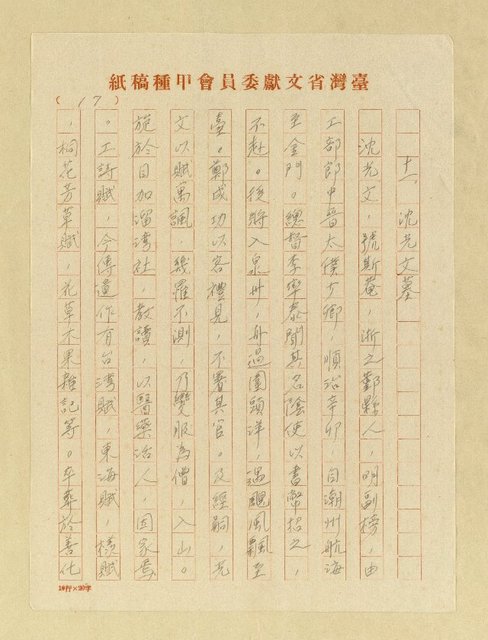 臺灣省文獻委員會甲種稿紙
(17)
十一、沈光文墓
沈光文，號斯菴，浙之鄞縣人，明副榜，由
工部郎中晉太僕少卿，順治辛卯，自潮州航海
至金門。總督李率泰聞其名陰使以書幣招之，
不赴。後將入泉州，舟過圍頭洋，遇颶風飄至
臺。鄭成功以客禮見，不署其官。及經嗣，光
文以賦寓諷，幾罹不測，乃變服為僧，入山。
旋於目加溜湾社，教讀，以醫藥活人，因家焉
。工詩賦，今傳遺作有台湾賦，東海賦，檨賦
，桐花芳草賦，花草木果雜記等。卒葬於善化